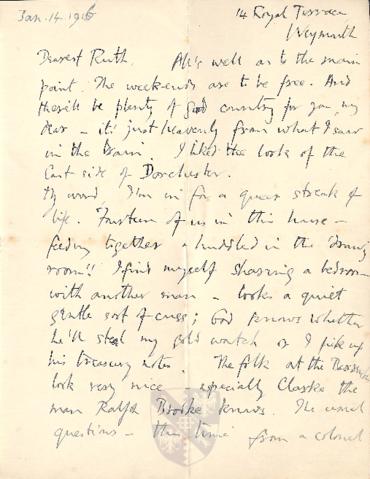 Jan. 14. 1916
14 Royal Terrace
Weymouth
Dearest Ruth. All's well as to the main
point. The week-ends are to be free. And
there'll be plenty of good country for you, my
dear – it's just heavenly from what I saw
in the train. I liked the look of the
East side of Dorchester.
My word, I'm in for a queer streak of
life. Fourteen of us in this house –
feeding together & huddled in the 'dining
room'!! I find myself sharing a bedroom
with another man – looks a quiet
gentle sort of cuss; God knows whether
he'll steal my gold watch or I pick up
his treasury notes. The folk at the
look very nice – especially Clarke the
man Ralph Brooke knows. The usual
questions – this time from a colonel